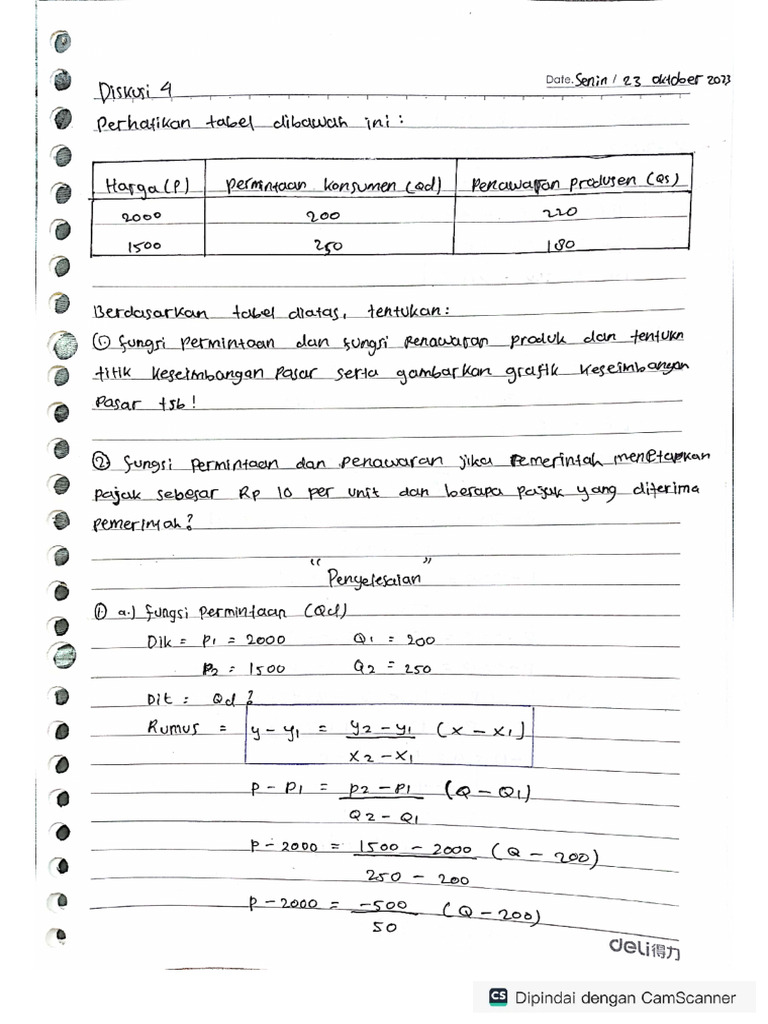 Date. Senin / 23 oktober 2023
Diskusi 4
Perhatikan tabel dibawah ini :
Harga (P) permintaan konsumen (Qd) Penawaran produsen (Qs)
2000 200 220
1500 250 180
Berdasarkan tabel diatas, tentukan:
① fungsi permintaan dan fungsi Penawaran produk dan tentukn
titik keseimbangan Pasar serta gambarkan grafik Keseimbangan
Pasar tsb!
② fungsi permintaan dan penawaran jika Pemerintah menetapkan
pajak sebesar Rp 10 per unit dan berapa pajak yang diterima
pemerintah?
" Penyelesaian "
① a.) fungsi permintaan (Qd)
Dik = P1 = 2000 Q1 = 200
P2 = 1500 Q2 = 250
Dit : Qd ?
Rumus = y - y1 = y2 - y1 (x - x1)
x2 - x1
P - P1 = P2 - P1 (Q - Q1)
Q2 - Q1
P - 2000 = 1500 - 2000 (Q - 200)
250 - 200
P - 2000 = -500 (Q - 200)
50
deli得力
CS Dipindai dengan CamScanner